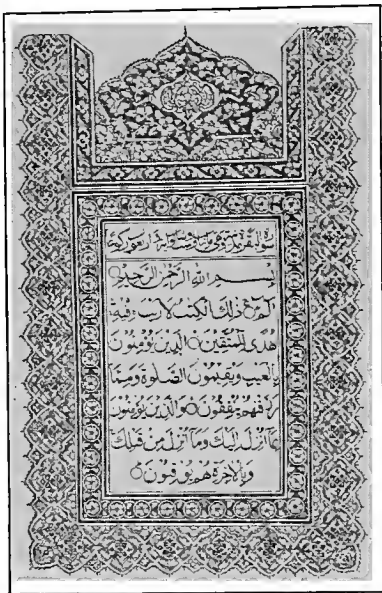 سورة البقرة مدنية وهي
بِسْمِ اللهِ الرَّحْمٰنِ الرَّحِيْمِ
الٓمّٓ ذٰلِكَ الْكِتٰبُ لَا رَيْبَ فِيْهِ
هُدًى لِّلْمُتَّقِيْنَ ۝ الَّذِيْنَ يُؤْمِنُوْنَ
بِالْغَيْبِ وَيُقِيْمُوْنَ الصَّلٰوةَ وَمِمَّا
رَزَقْنٰهُمْ يُنْفِقُوْنَ ۝ وَالَّذِيْنَ يُؤْمِنُوْنَ
بِمَآ اُنْزِلَ اِلَيْكَ وَمَآ اُنْزِلَ مِنْ قَبْلِكَ
وَبِالْاٰخِرَةِ هُمْ يُوْقِنُوْنَ ۝